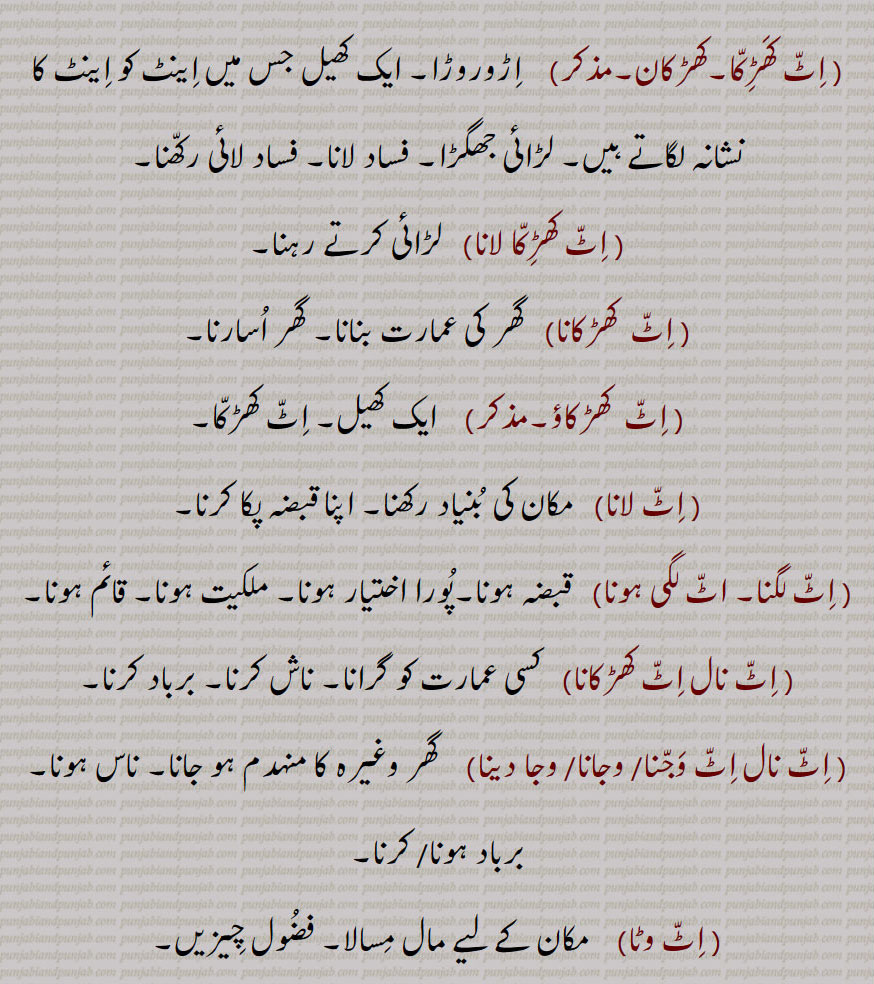 (اِٹّ کھَڑِکّا۔کھڑکان۔مذکر) اِڑوروڑا۔ ایک کھیل جس میں اِینٹ کو اِینٹ کا
نشانہ لگاتے ہیں۔ لڑائی جھگڑا۔ فساد لانا۔ فساد لائی رکھّنا۔
(اِٹّ کھڑِکّا لانا) لڑائی کرتے رہنا۔
(اِٹّ کھڑکانا) گھر کی عمارت بنانا۔ گھر اُسارنا۔
(اِٹّ کھڑکاؤ۔مذکر) ایک کھیل۔ اِٹّ کھڑکّا۔
(اِٹّ لانا) مکان کی بُنیاد رکھنا۔ اپنا قبضہ پکا کرنا۔
(اِٹّ لگنا۔ اٹّ لگی ہونا) قبضہ ہونا۔پُورا اختیار ہونا۔ ملکیت ہونا۔ قائم ہونا۔
(اِٹّ نال اِٹّ کھڑکانا) کسی عمارت کو گرانا۔ ناش کرنا۔ برباد کرنا۔
(اِٹّ نال اِٹّ وَجّنا/ وجانا/ وجا دینا) گھر وغیرہ کا منہدم ہو جانا۔ ناس ہونا۔
برباد ہونا/ کرنا۔
(اِٹّ وٹا) مکان کے لیے مال مِسالا۔ فضُول چِیزیں۔